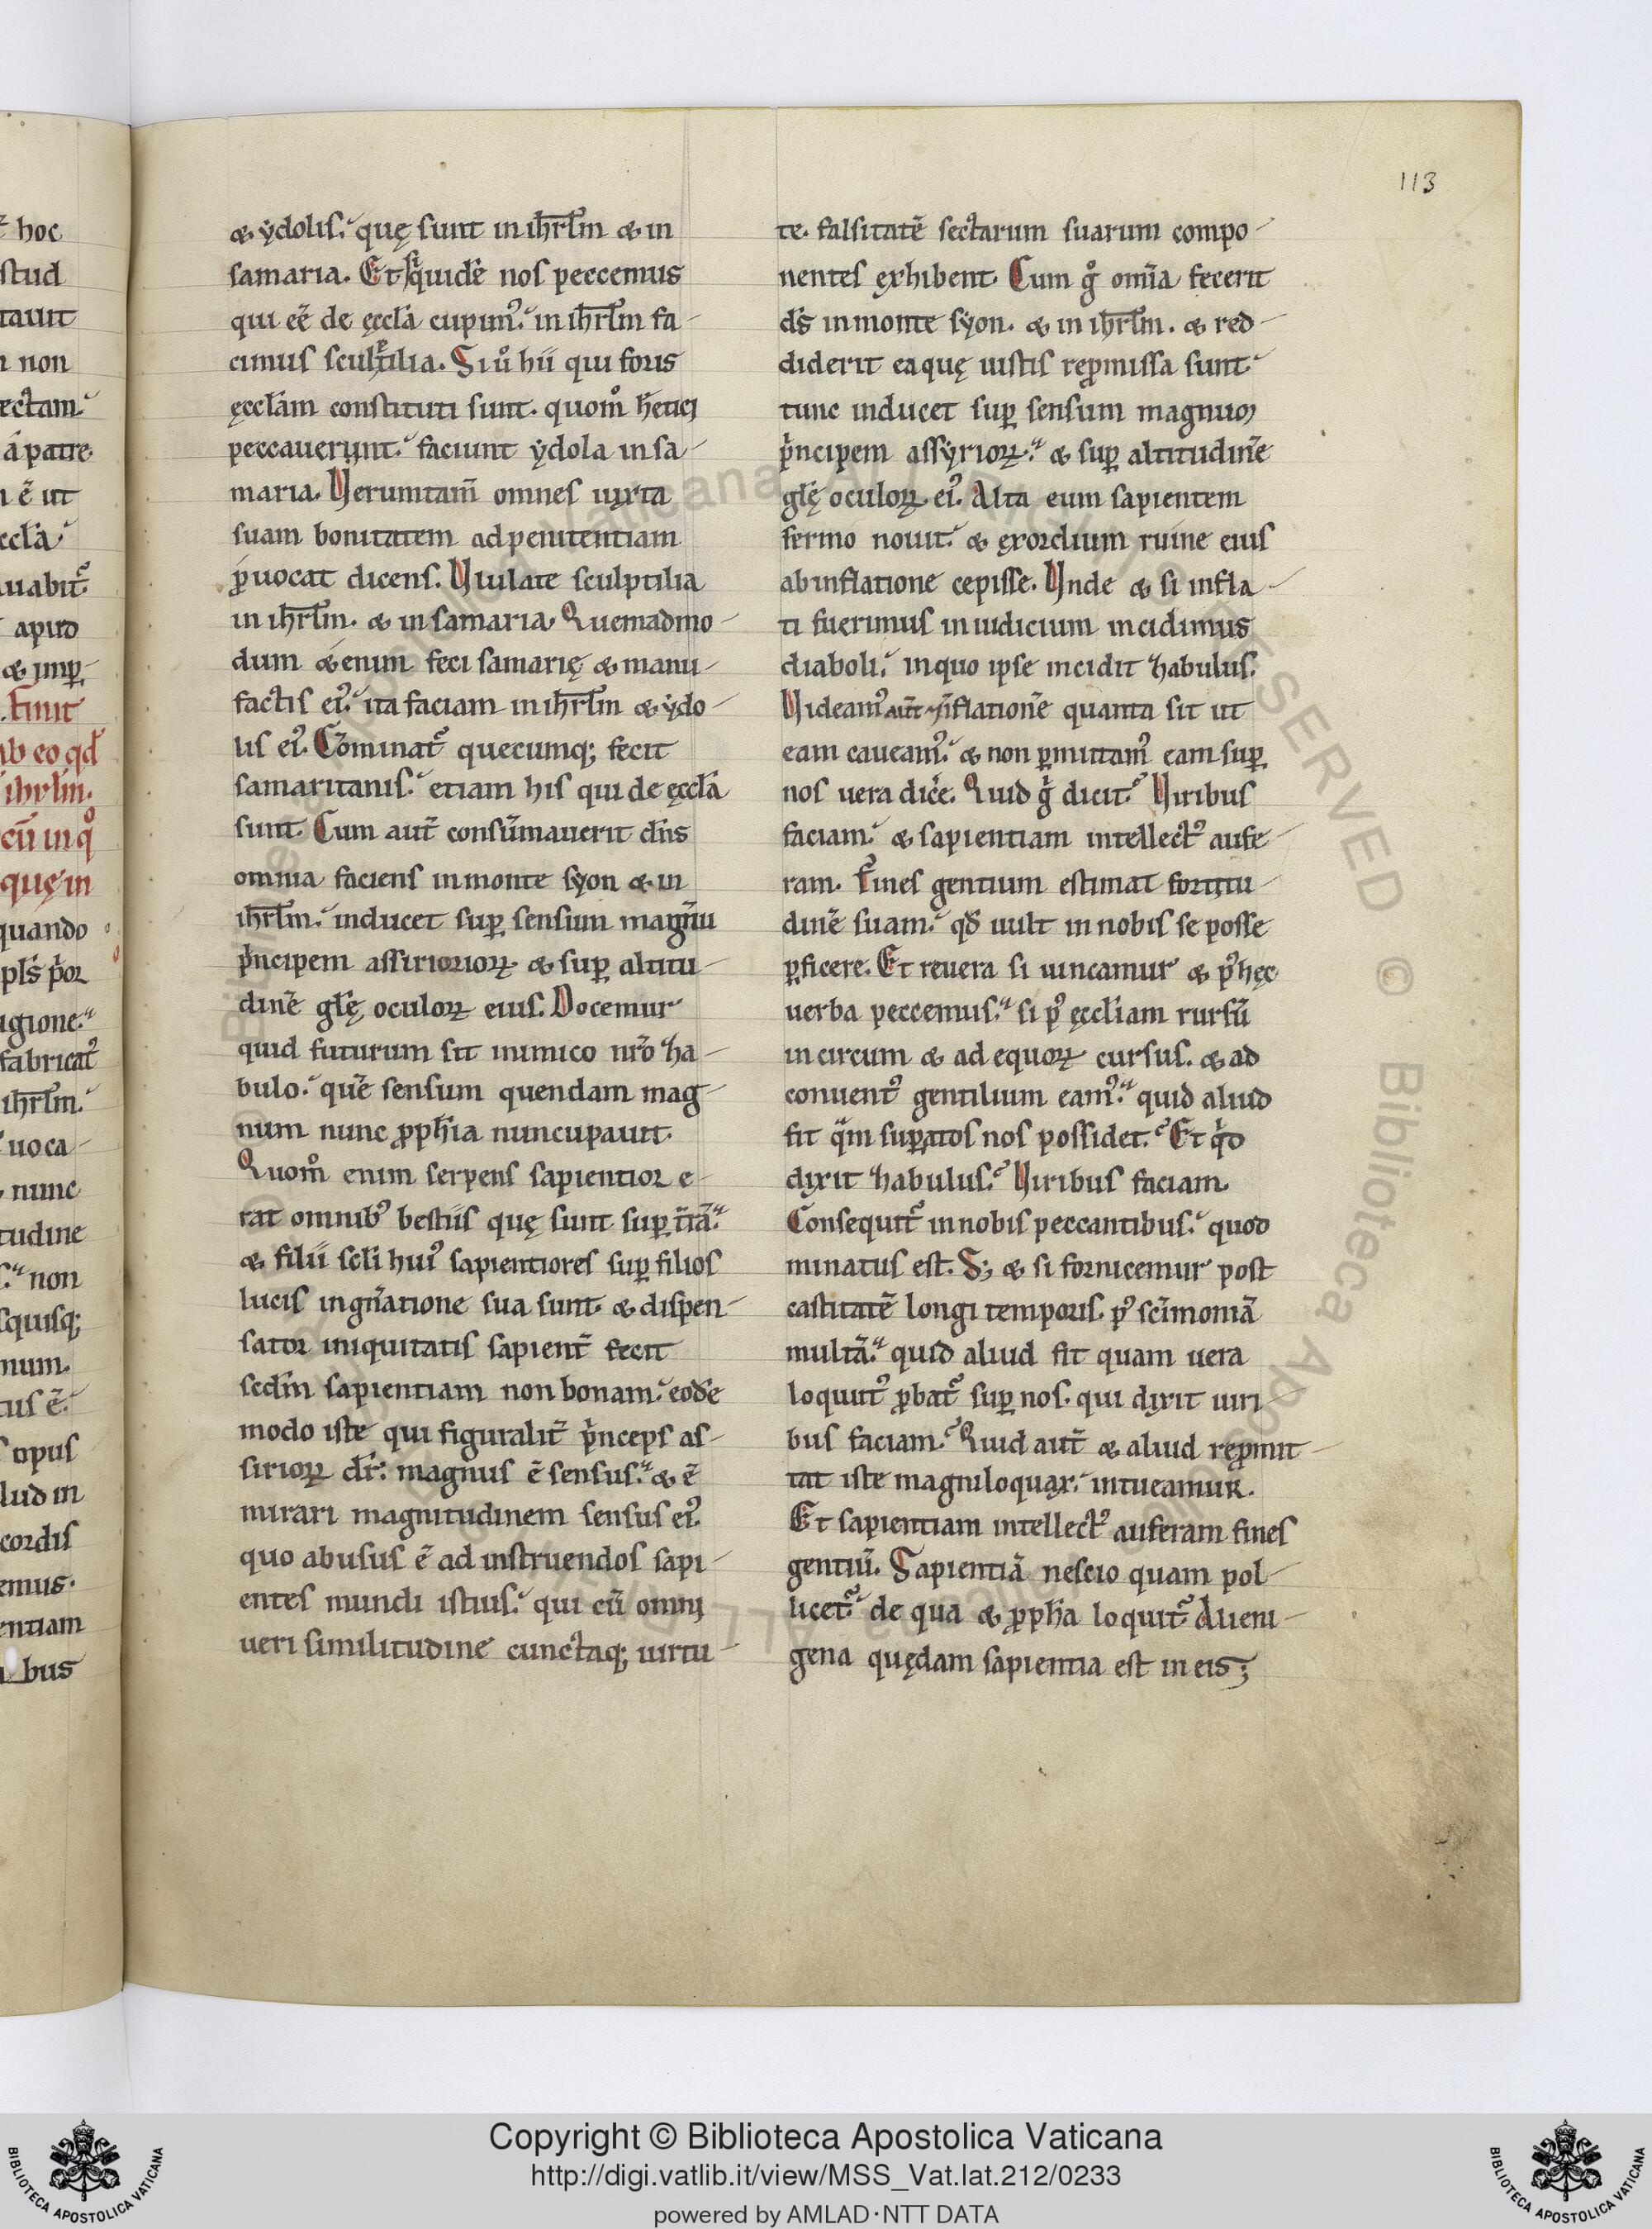 113
t̃ hoc
stud
tauit
n non
ectam.
á patre.
n ē ut
eccl̃a
uabit᷒
apud
& imp̲
finit
ab eo qd̃
ihrl̃m.
cū in q̊
quę in
quando
pl̃s p̃or
igione.
fabricat᷒
ihrl̃m.
uoca-
nunc
tudine
non
squisq;
num.
tus ē.
opus
lud in
cordis
emus.
entiam
bus
& ydolis. quę sunt in ihrl̃m & in
samaria. Et siquidē nos peccemus
qui eē de ęccl̃a cupim᷒. in ihrl̃m fa-
cimus sculptilia. Si ů hii qui foris
ęccl̃am constituti sunt. quom̊ hẽtici
peccauerunt. faciunt ydola in sa-
maria. Uerumtam̃ omnes iuxta
suam bonitatem ad penitentiam
ꝓuocat dicens. Ululate sculptilia
in ihrl̃m. & in samaria. Quemadmo-
dum &enim feci samarię & manu-
factis ei᷒. ita faciam in ihrl̃m & ydo-
lis ei᷒. Cōminat᷒ quecumq; fecit
samaritanis. etiam his qui de ęccl̃a
sunt. Cum aut̃ consūmauerit dñs
omnia faciens in monte syon & in
ihrl̃m. inducet suꝑ sensum magnū
p̃ncipem assirioriorꝝ & suꝑ altitu-
dinē gl̃ę oculorꝝ eius. Docemur
quid futurum sit inimico nr̃o ha-
bulo. quē sensum quendam mag-
num nunc ꝓph̃ia nuncupauit.
Quom̊ enim serpens sapientior e-
rat omnib᷒ bestiis quę sunt suꝑ t̃rā.
& filii sc̃li hui᷒ sapientiores suꝑ filios
lucis in gñatione sua sunt. & dispen-
sator iniquitatis sapient̃ fecit
scd̃m sapientiam non bonam. eodē
modo iste qui figuralit̃ p̃nceps as-
siriorꝝ dr̃. magnus ē sensus. & ē
mirari magnitudinem sensus ei᷒.
quo abusus ē ad instruendos sapi-
entes mundi istius. qui cū omni
ueri similitudine cunctaq; uirtu-
te. falsitatē sectarum suarum compo-
nentes exhibent. Cum g̊ om̃ia fecerit
dñs in monte syon. & in ihrl̃m. & red-
diderit ea quę iustis reꝓmissa sunt
tunc inducet suꝑ sensum magnum
p̃ncipem assyriorꝝ. & suꝑ altitudinē
gl̃ę oculorꝝ ei᷒. Alta eum sapientem
sermo nouit. & exordium ruine eius
ab inflatione cepisse. Unde & si infla-
ti fuerimus in iudicium incidimus
diaboli. in quo ipse incidit habulus.
Uideam᷒ aut̃ inflationē quanta sit ut
eam caueam᷒. & non ꝑmittam᷒ eam suꝑ
nos uera dicē. Quid g̊ dicit. Uiribus
faciam. & sapientiam intellect᷒ aufe-
ram. fines gentium estimat fortitu-
dinē suam. qd̃ uult in nobis se posse
ꝑficere. Et reuera si uincamur & p᷒ hęc
uerba peccemus. si p᷒ ęccl̃iam rursū
in circum & ad equorꝝ cursus. & ad
conuent᷒ gentilium eam᷒. quid aliud
fit q̃m suꝑatos nos possidet. Et q̃d
dixit habulus. Uiribus faciam.
Consequit᷒ in nobis peccantibus. quod
minatus est. S; & si fornicemur post
castitatē longi temporis. p᷒ sc̃imoniā
multā. quid aliud fit quam uera
loquut᷒ ꝓbat᷒ suꝑ nos. qui dixit uiri
bus faciam. Quid aut̃ & aliud reꝓmit-
tat iste magniloquax. intueamur.
Et sapientiam intellect᷒ auferam fines
gentiū. Sapientiā nescio quam pol-
licet᷒. de qua & ꝓph̃a loquit᷒. Alieni-
gena quędam sapientia est in eis;
Copyright © Biblioteca Apostolica Vaticana
http://digi.vatlib.it/view/MSS_Vat.lat.212/0233
powered by AMLAD·NTT DATA
BIBLIOTECA APOSTOLICA VATICANA
BIBLIOTECA APOSTOLICA VATICANA